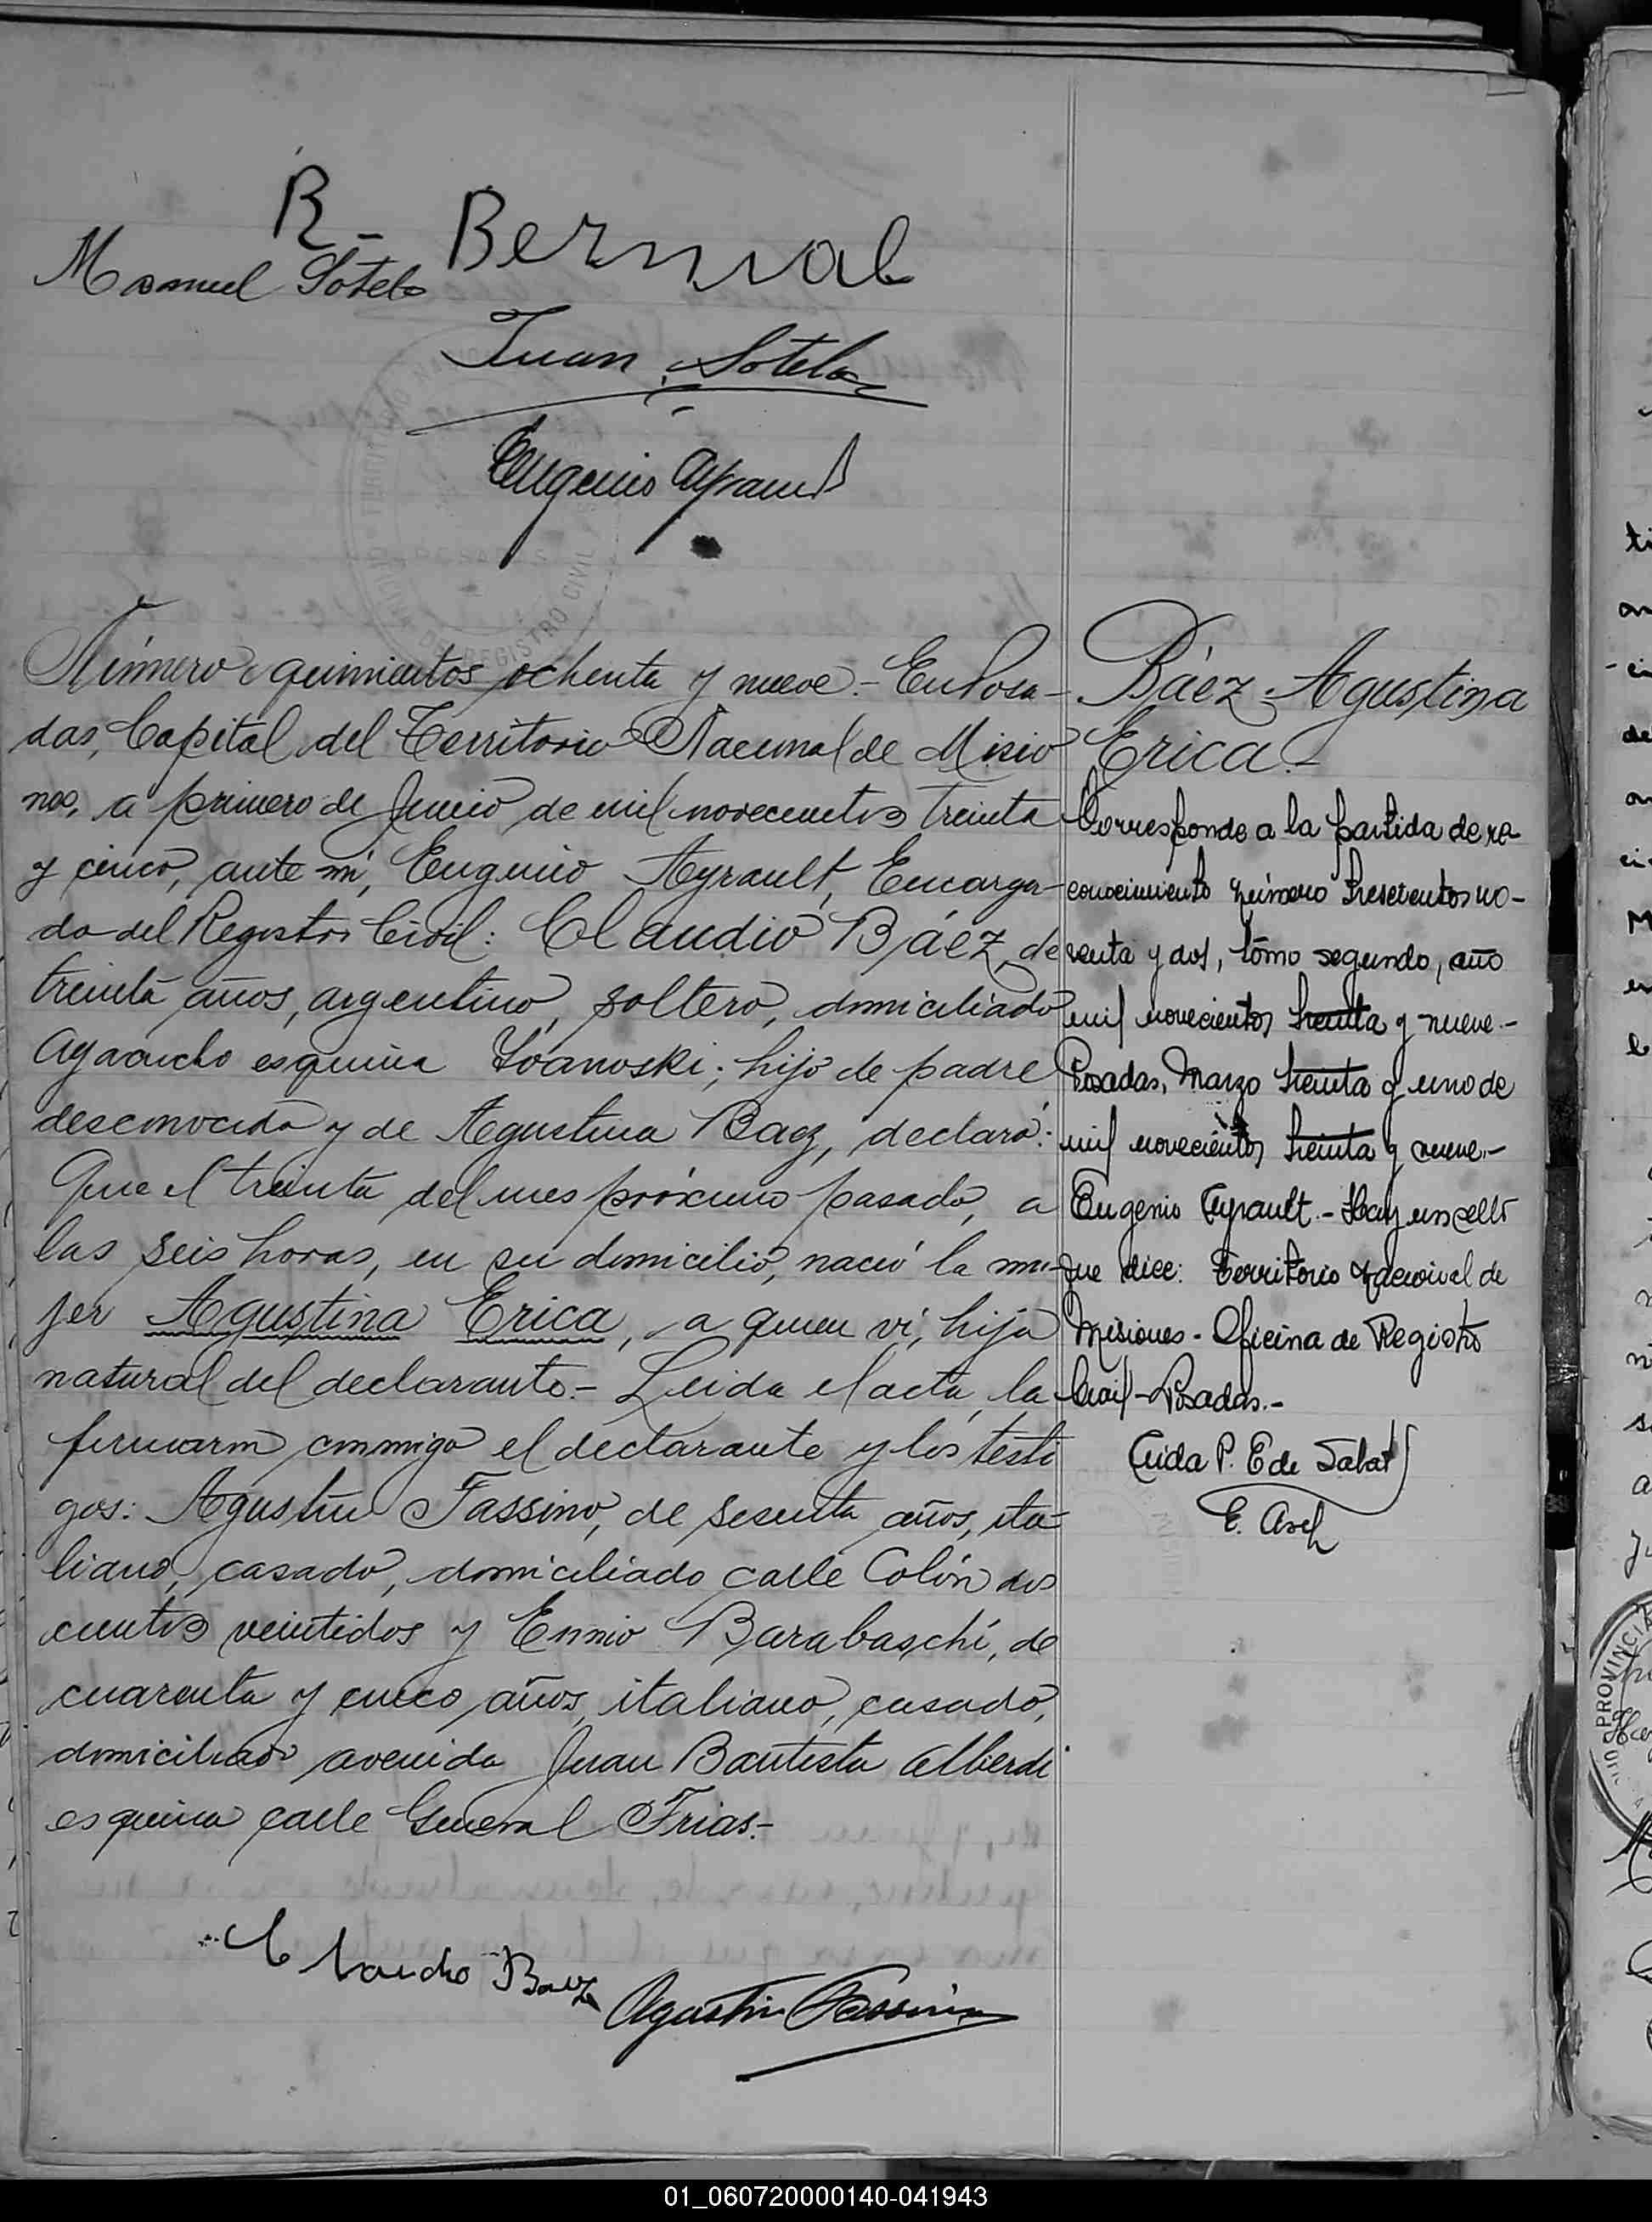 R. Bernal
Manuel Sotelo
Juan Sotelo
Eugenio Ayrault
POSADAS
REGISTRO CIVIL
Número quinientos ochenta y nueve.- En Posa-
das, Capital del Territorio Nacional de Misio
nes, a primero de Junio de mil novecientos treinta
y cinco, ante mí, Eugenio Ayrault, Encarga-
do del Registro Civil: Claudio Báez, de
treinta años, argentino, soltero, domiciliado
Ayacucho esquina Ivanoski; hijo de padre
desconocido y de Agustina Baez, declaró:
Que el treinta del mes próximo pasado, a
las seis horas, en su domicilio, nació la mu-
jer Agustina Erica, a quien ví, hija
natural del declarante.- Leida el acta, la
firmaron conmigo el declarante y los testi
gos: Agustin Fassino, de sesenta años, ita-
liano, casado, domiciliado calle Colón dos
cientos veintidos y Ennio Barabaschi, de
cuarenta y cinco años, italiano, casado,
domiciliado avenida Juan Bautista Alberdi
esquina calle General Frias.-
Claudio Baez
Agustin Fassino
Báez Agustina
Erica.-
Corresponde a la partida de re-
conocimiento número trescientos no-
venta y dos, tomo segundo, año
mil novecientos treinta y nueve.-
Posadas, Marzo treinta y uno de
mil novecientos treinta y nueve.-
Eugenio Ayrault.- Hay un sello
que dice: Territorio Nacional de
Misiones - Oficina de Registro
Civil - Posadas.-
P. E de Sabat
E.
01_060720000140-041943